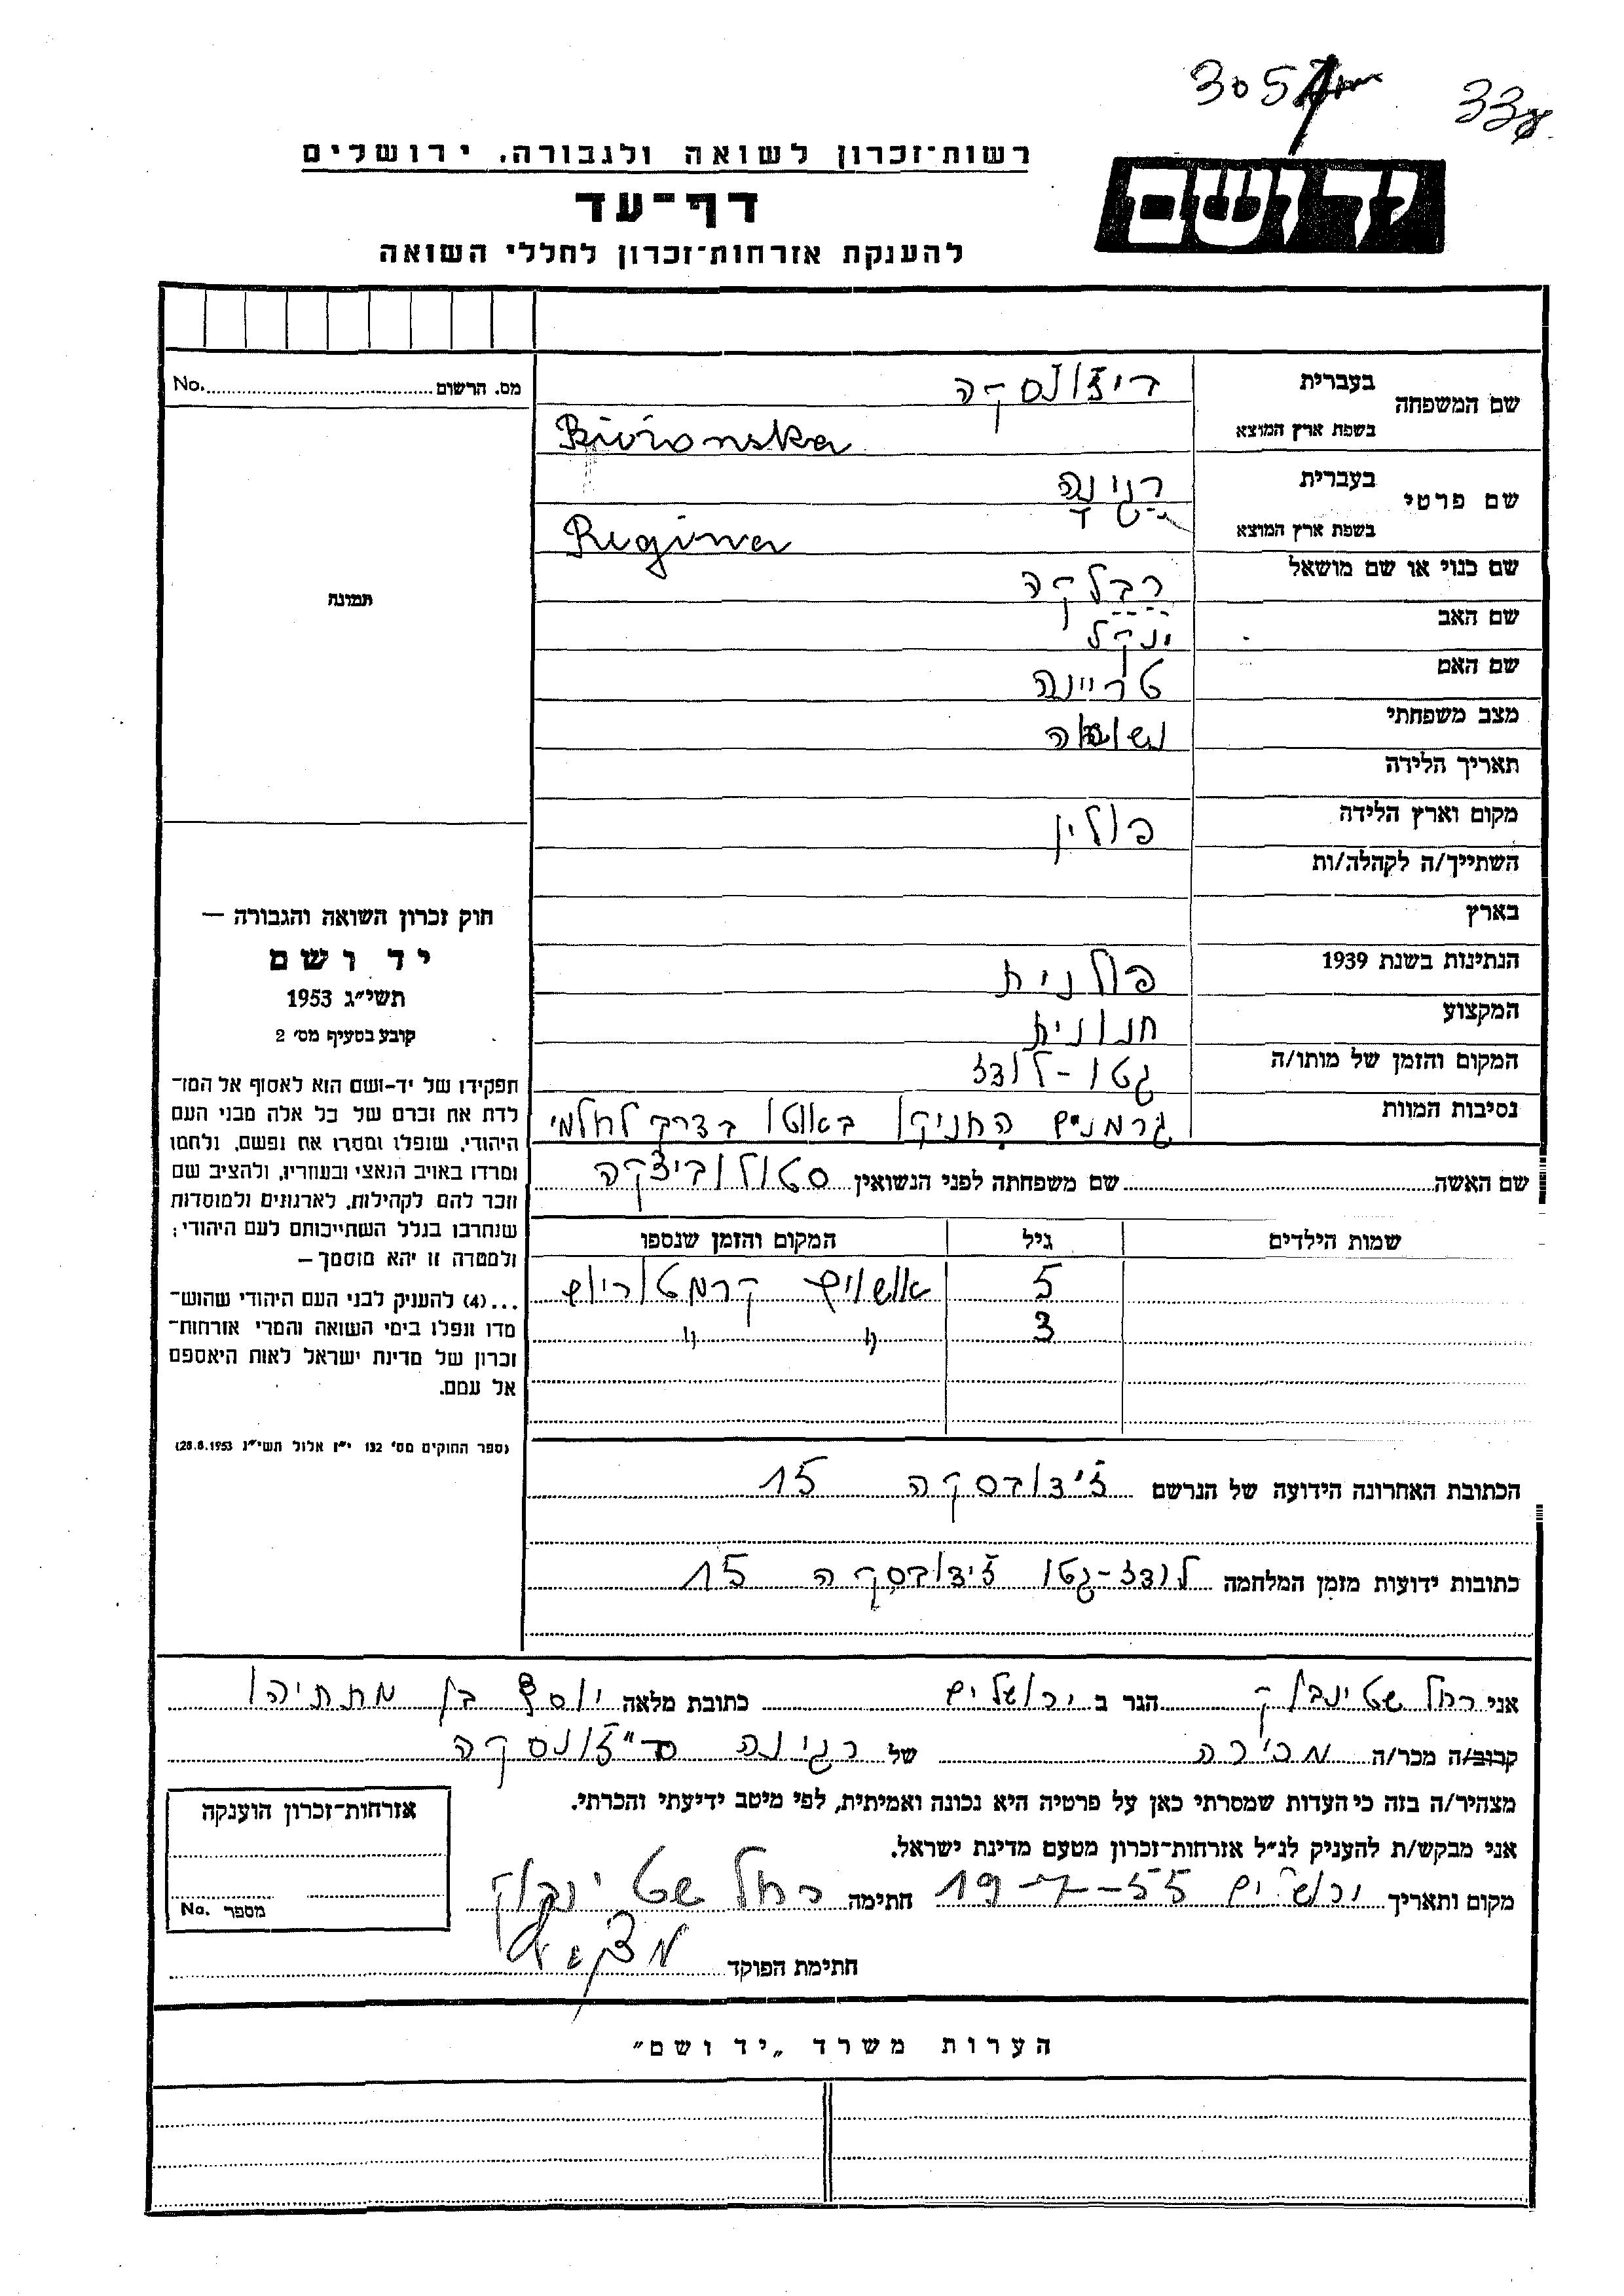 305
33
רשות־זכרון לשואה ולגבורה, ירושלים
יד ושם
דף־עד
להענקת אזרחות־זכרון לחללי השואה
מס. הרשום No.
תמונה
חוק זכרון השואה והגבורה —
יד ושם
תשי״ג 1953
קובע בסעיף מס׳ 2
תפקידו של יד-ושם הוא לאסוף אל המו־
לדת את זכרם של כל אלה מבני העם
היהודי, שנפלו ומסרו את נפשם, נלחמו
ומרדו באויב הנאצי ובעוזריו, ולהציב שם
וזכר להם לקהילות, לארגונים ולמוסדות
שנחרבו בגלל השתייכותם לעם היהודי;
ולמטרה זו יהא מוסמך —
...(4) להעניק לבני העם היהודי שהוש־
מדו ונפלו בימי השואה והמרי אזרחות־
זכרון של מדינת ישראל לאות היאספם
אל עמם.
(ספר החוקים מס׳ 132 י״ז אלול תשי״ג 28.8.1953)
שם המשפחה בעברית ביזונסקה
בשפת ארץ המוצא Biżonska
שם פרטי בעברית רגינה
בשפת ארץ המוצא Regina
שם כנוי או שם מושאל רבלקה
שם האב ינקל
שם האם טריינה
מצב משפחתי נשואה
תאריך הלידה
מקום וארץ הלידה פולין
השתייך/ה לקהלה/ות
בארץ
הנתינות בשנת 1939 פולנית
המקצוע חנונית
המקום והזמן של מותו/ה גטו-לודז
נסיבות המוות גרמנים החניקו באוטו בדרך לחלמי
שם האשה שם משפחתה לפני הנשואין סטולוביצקה
שמות הילדים גיל המקום והזמן שנספו
5 אושויץ קרמטוריום
3 " "
הכתובת האחרונה הידועה של הנרשם זידובסקה 15
כתובות ידועות מזמן המלחמה לודז-גטו זידובסקה 15
אני רחל שטינבוק הגר ב ירושלים כתובת מלאה יוסף בן מתתיהו
קרוב/ה מכר/ה מכירה של רגינה ביזונסקה
מצהיר/ה בזה כי העדות שמסרתי כאן על פרטיה היא נכונה ואמיתית, לפי מיטב ידיעתי והכרתי.
אני מבקש/ת להעניק לנ״ל אזרחות־זכרון מטעם מדינת ישראל.
מקום ותאריך ירושלים 19-7-55 חתימה רחל שטינבוק
חתימת הפוקד
אזרחות־זכרון הוענקה
מספר No.
הערות משרד „יד ושם״